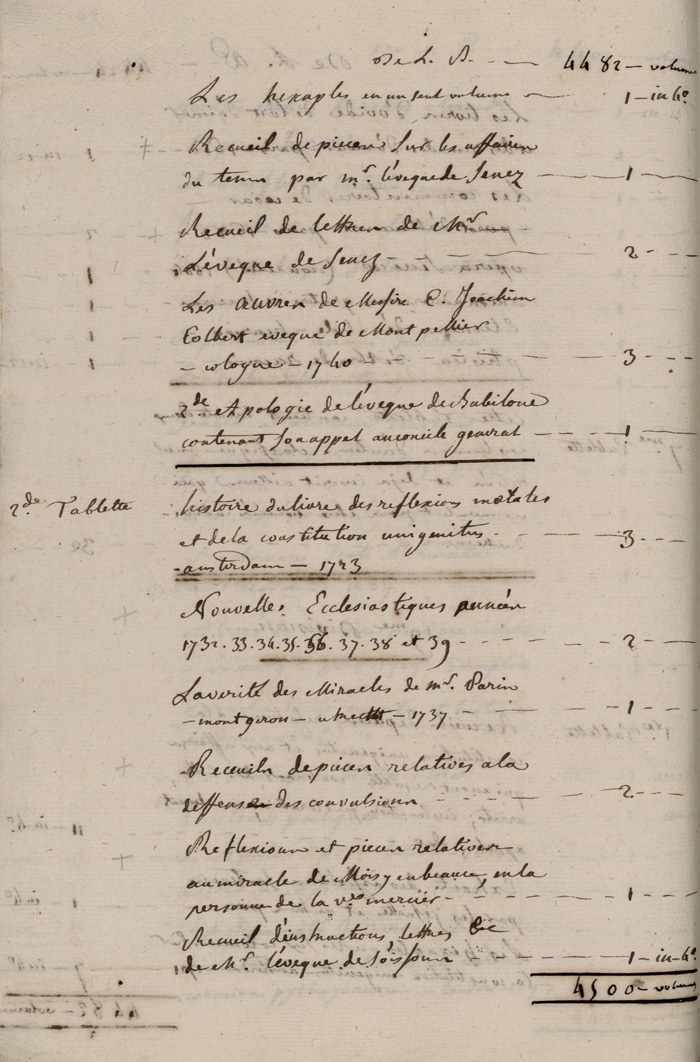 De L. A. - - - 4482 - volume
Les hexaples en un seul volume - 1 - in 4°
Recueil de pieces sur les affaires
du tems par mr. l'éveque de Senez - 1 -
Recueil de lettres de Mr.
L'éveque de Senez - - - 2 - -
Les Œuvres de Messire C. Joachim
Colbert eveque de Montpellier
- cologne - 1740 - - - 3 - -
2de Apologie de l'éveque de Babilone
contenant son appel au concile general - - - 1 - -
2de Tablette
histoire du livre des reflexions morales
et de la constitution unigenitus. - - - 3 - -
- amsterdam - 1723
Nouvelles Ecclesiastiques années
1732. 33. 34. 35. 36. 37. 38 et 39 - - - 2 - -
La verité des Miracles de mr. Paris
- montgeron - utrecht - 1737 - - - 1 - -
Recueils de pieces relatives a la
deffense des convulsions - - - 2 - -
Reflexions et pieces relatives
au miracle de Moisy en beauce, en la
personne de la ve. mercier - - - 1 - -
Recueil d'instructions, lettres &c
de Mr. l'éveque de soissons - - - 1 - in 4°
4500 - volumes